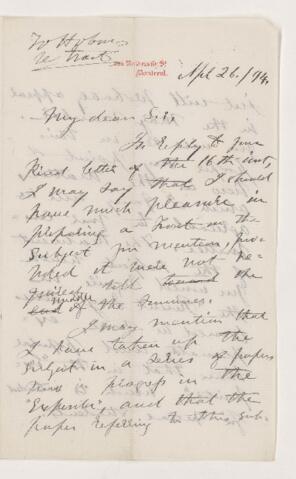 re Tract
Montreal.
Apl 26/94.
My dear Sir,
In reply to your
kind letter of the 16th inst,
I may say that I should
have much pleasure in
preparing a Tract on the
subject you mention, pro-
vided it were not re-
quired till the
middle of the summer.
I may mention that
I have taken up the
subject in a series of papers
in progress in the
"Expositor", and that the
paper referring to this sub-